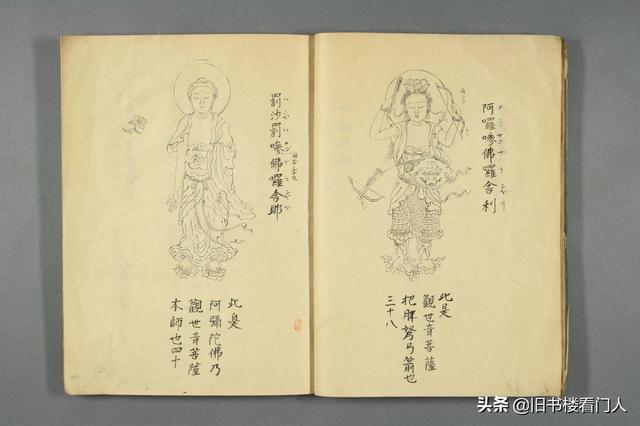 阿囉嘇佛囉舍利
此是
觀世音菩薩
把脾弩弓箭也
三十八
罰沙罰嘇佛囉舍耶
此是
阿彌陀佛乃
觀世音菩薩
本師也四十
头条 @旧书楼看门人